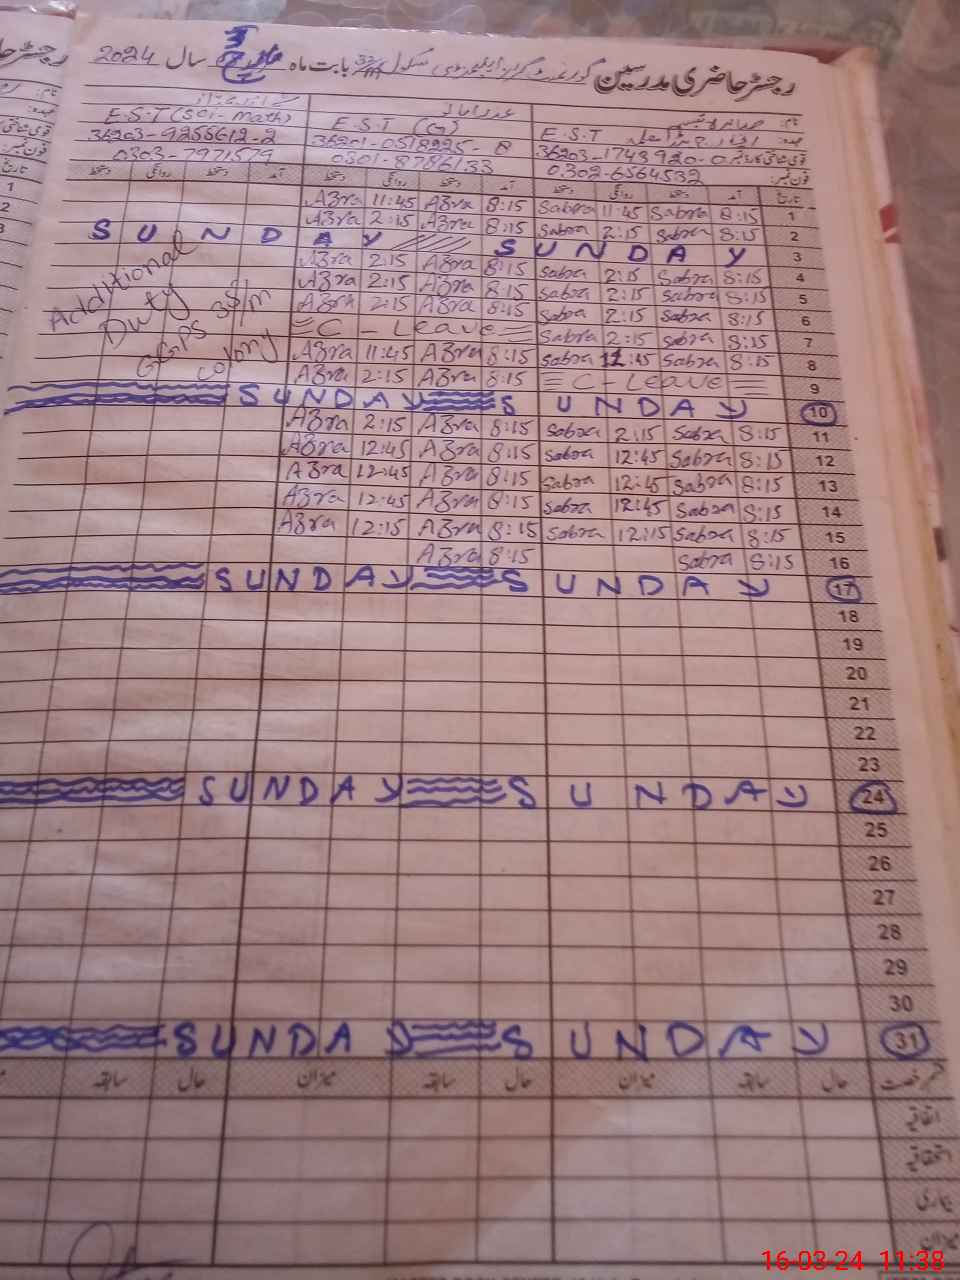 رجسٹر حاضری مدرسین گورنمنٹ گرلز سکول بابت ماہ مارچ سال 2024
نام:
عہدہ: E.S.T
E.S.T (G)
E.S.T (Sci-Math)
36203-1743920-0
36201-0518225-8
36203-9256612-2
فون نمبر: 0302-6564532
0301-8786133
0303-7971579
تاریخ آمد دستخط روانگی دستخط آمد دستخط روانگی دستخط آمد دستخط روانگی دستخط
1 8:15 Sabra 11:45 Sabra 8:15 AZra 11:45 AZra
2 8:15 Sabra 2:15 Sabra 8:15 AZra 2:15 AZra
3 SUNDAY SUNDAY
4 8:15 Sabra 2:15 Sabra 8:15 AZra 2:15 AZra
5 8:15 Sabra 2:15 Sabra 8:15 AZra 2:15 AZra
6 8:15 Sabra 2:15 Sabra 8:15 AZra 2:15 AZra
7 8:15 Sabra 2:15 Sabra C-Leave
8 8:15 Sabra 12:45 Sabra 8:15 AZra 11:45 AZra
9 C-Leave 8:15 AZra 2:15 AZra
Additional
Duty
GGPS 38/m
colony
10 SUNDAY SUNDAY
11 8:15 Sabra 2:15 Sabra 8:15 AZra 2:15 AZra
12 8:15 Sabra 12:45 Sabra 8:15 AZra 12:45 AZra
13 8:15 Sabra 12:45 Sabra 8:15 AZra 12:45 AZra
14 8:15 Sabra 12:45 Sabra 8:15 AZra 12:45 AZra
15 8:15 Sabra 12:15 Sabra 8:15 AZra 12:15 AZra
16 8:15 Sabra 8:15 AZra
17 SUNDAY SUNDAY
18
19
20
21
22
23
24 SUNDAY SUNDAY
25
26
27
28
29
30
31 SUNDAY SUNDAY
حال سابقہ میزان حال سابقہ میزان حال سابقہ
اتفاقیہ
استحقاقیہ
بیماری
میزان
16-03-24 11:38